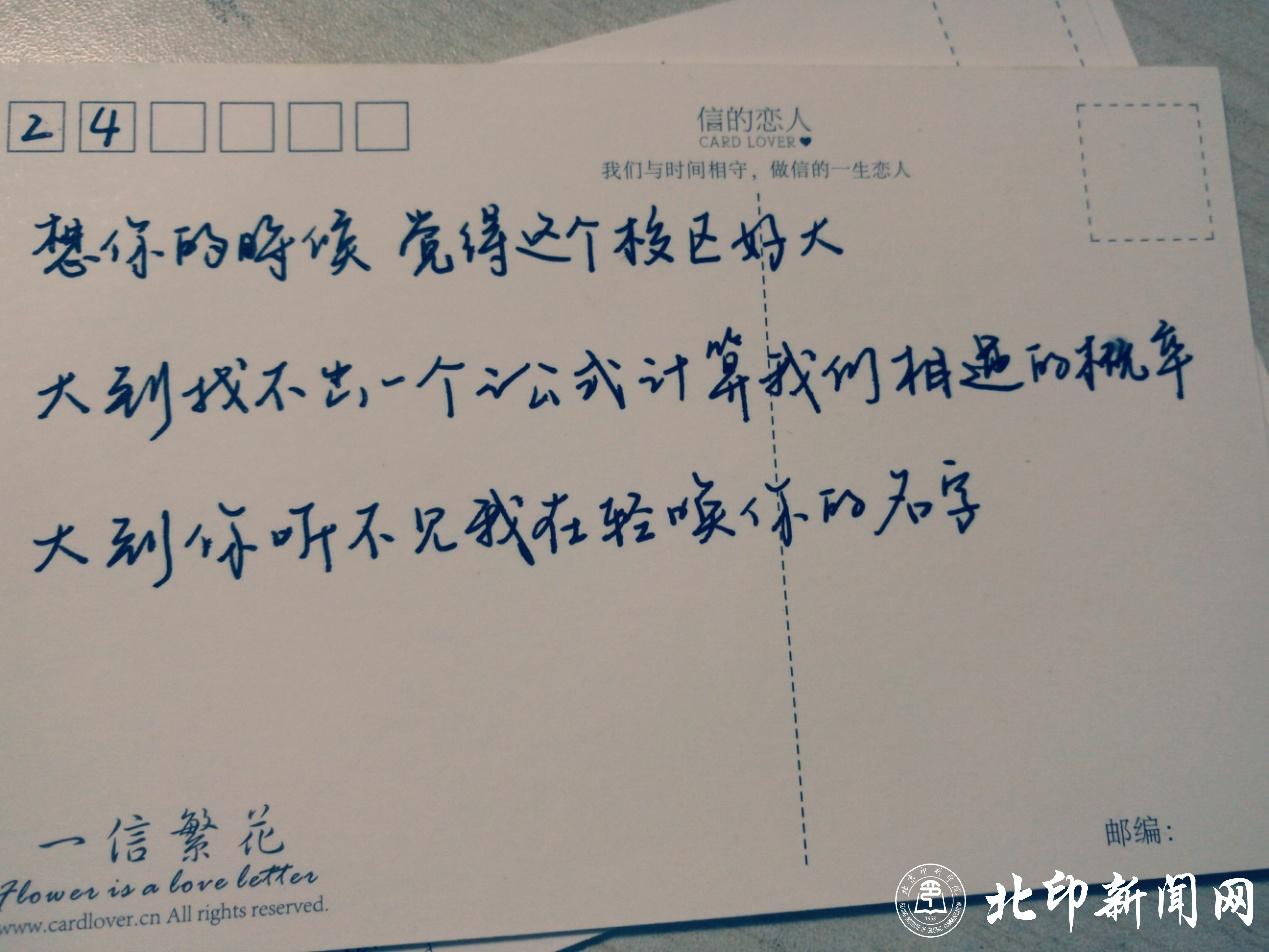 24
信的恋人
CARD LOVER
我们与时间相守，做信的一生恋人
想你的时候 觉得这个校区好大
大到找不出一个公式计算我们相遇的概率
大到你听不见我在轻唤你的名字
一信繁花
Flower is a love letter
www.cardlover.cn All rights reserved.
邮编：
北印新闻网